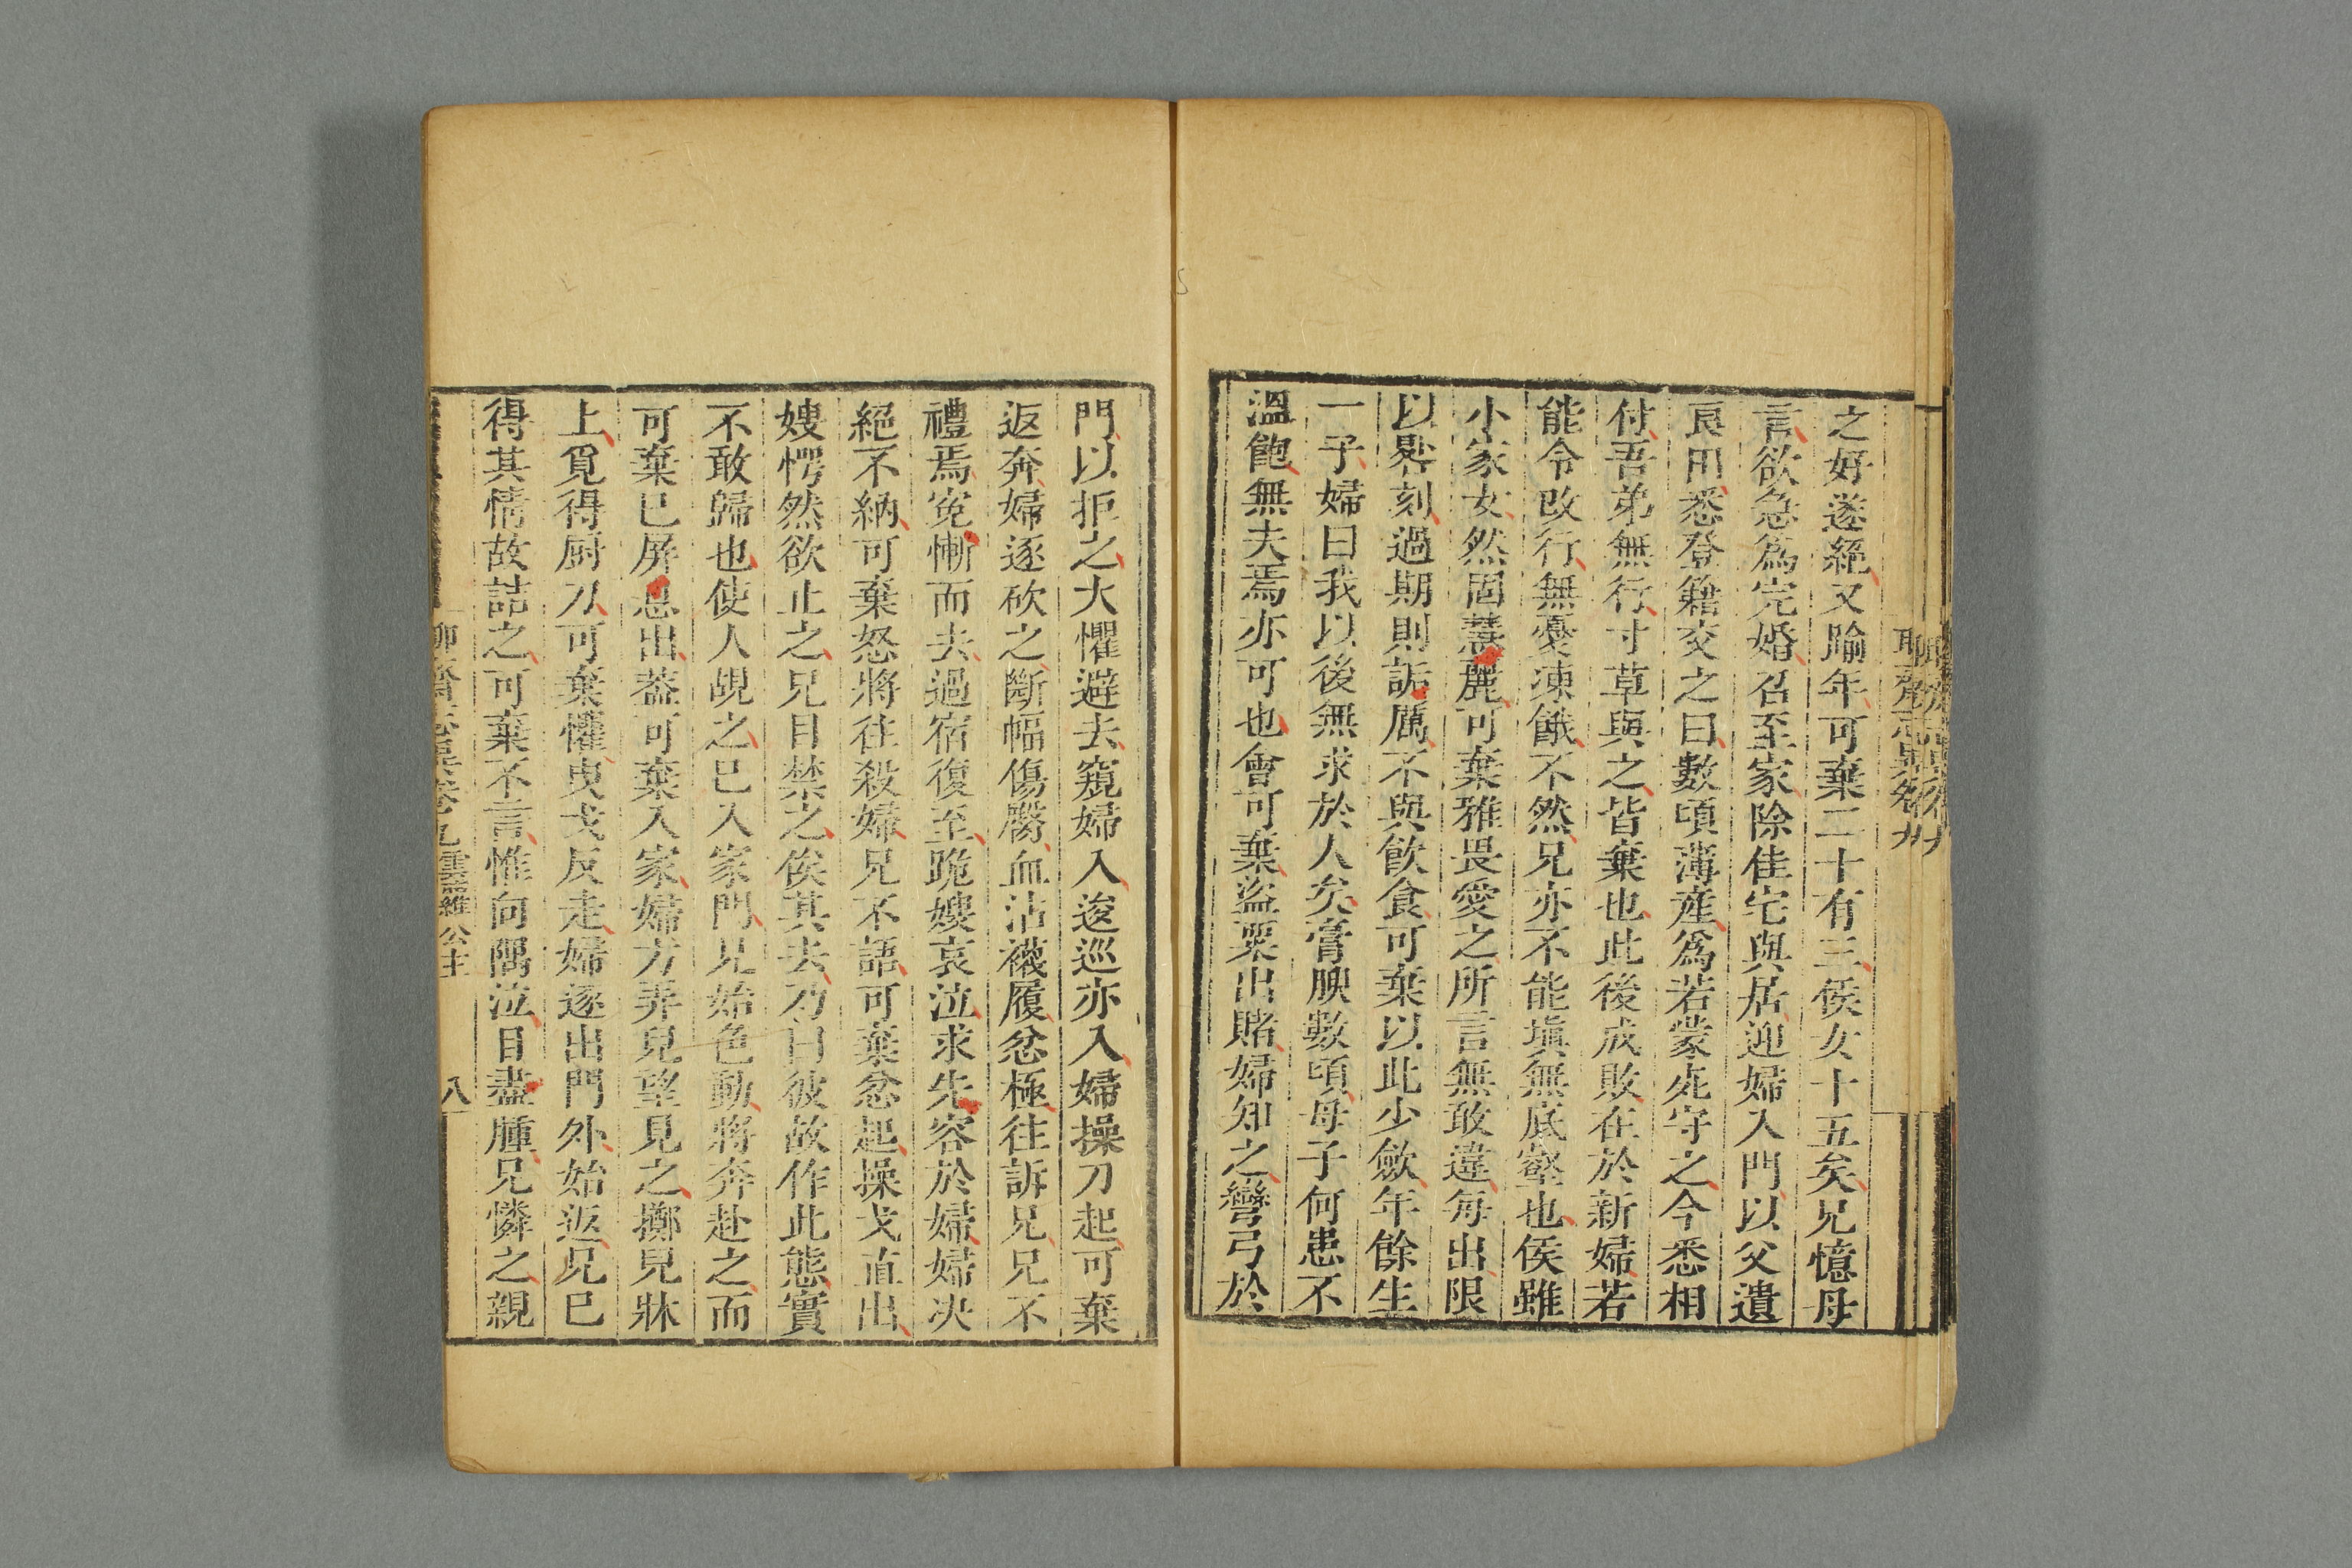 之好遂絕又踰年可棄二十有三侯女十五矣兄憶母
言欲急爲完婚召至家除佳宅與居迎婦入門以父遺
良田悉登籍交之曰數頃薄產爲若蒙死守之今悉相
付吾弟無行寸草與之皆棄也此後成敗在於新婦若
能令改行無憂凍餓不然兄亦不能塡無底壑也侯雖
小家女然固慧麗可棄雅畏愛之所言無敢違每出限
以晷刻過期則詬厲不與飮食可棄以此少歛年餘生
一子婦曰我以後無求於人矣膏腴數頃母子何患不
溫飽無夫焉亦可也會可棄盜粟出賭婦知之彎弓於
門以拒之大懼避去窺婦入逡巡亦入婦操刀起可棄
返奔婦逐砍之斷幅傷臋血沾襪履忿極往訴兄兄不
禮焉寃慚而去過宿復至跪嫂哀泣求先容於婦婦决
絕不納可棄怒將往殺婦兄不語可棄忿起操戈直出
嫂愕然欲止之兄目禁之俟其去乃曰彼故作此態實
不敢歸也使人覘之已入家門見始色動將奔赴之而
可棄已屏息出葢可棄入家婦方弄兒望見之擲兒牀
上覓得厨刀可棄懼曳戈反走婦逐出門外始返兄已
得其情故詰之可棄不言惟向隅泣目盡腫兄憐之親
雲蘿公主
八